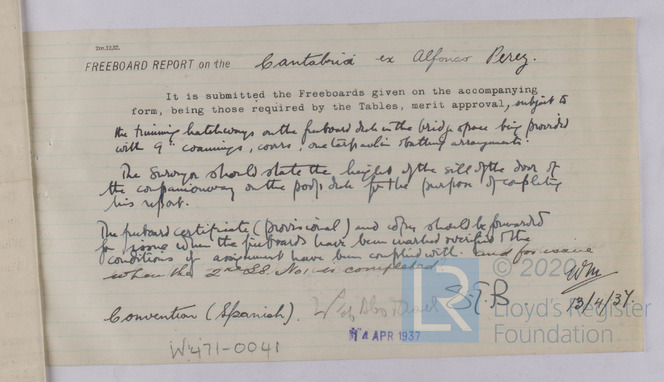 Ten.12,32.
FREEBOARD REPORT on the Cantabria ex Alfonso Perez.
It is submitted the Freeboards given on the accompanying
form, being those required by the Tables, merit approval, subject to
the trimming hatchways on the freeboard deck in the bridge space being provided
with 9" coamings, covers, one tarpaulin & battening arrangements.
The Surveyor should state the height of the sill of the door of
the companionway on the poop deck for the purpose of completing
his report.
The freeboard certificate (provisional) and copies should be forwarded
for issue when the freeboards have been marked verified & the
conditions of assignment have been complied with. and for issue
when the 2nd SS. No1 is completed
Convention (Spanish).
S.T.B
13/4/37.
14 APR 1937
W471-0041
© 2020
LR
Lloyd's Register
Foundation